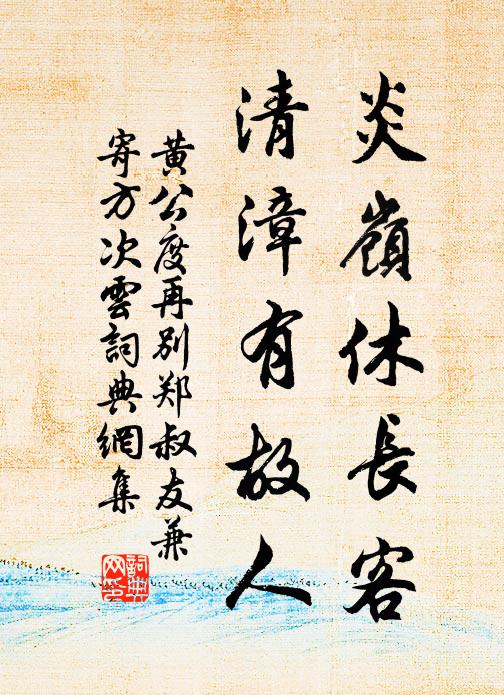 炎嶺休長客
清漳有故人
黄公度再别郑叔友兼
寄方次雲詞典網集